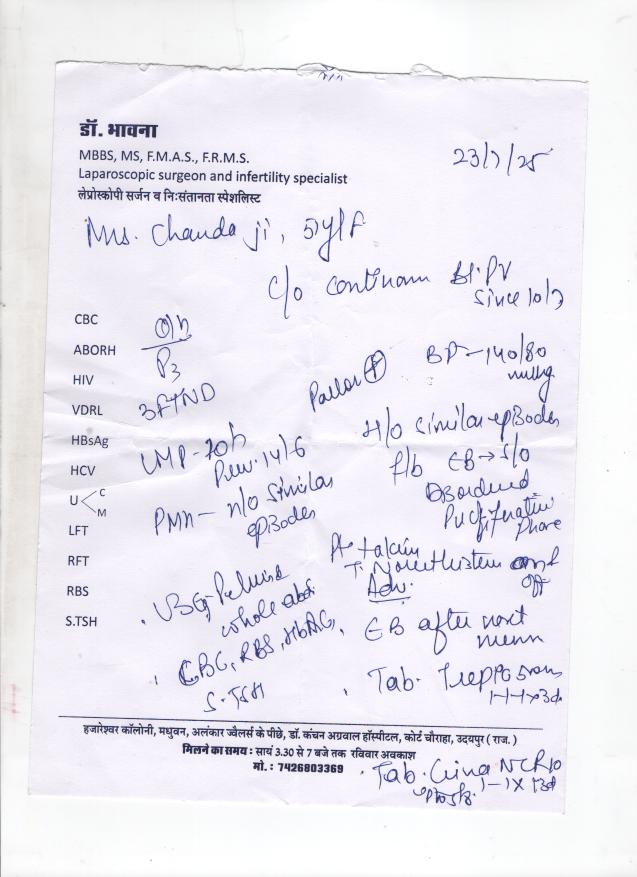 डॉ. भावना
MBBS, MS, F.M.A.S., F.R.M.S.
Laparoscopic surgeon and infertility specialist
लेप्रोस्कोपी सर्जन व निःसंतानता स्पेशलिस्ट
23/7/25
Mrs. Chanda ji,
c/o continuous Bl. PV
since 10/7
CBC
ABORH
HIV
VDRL
HBsAg
HCV
U < C M
LFT
RFT
RBS
S.TSH
O/h
P3
3FTND
Pallor +
BP - 140/80
mmHg
LMP -
Prev. 14/6
PMH - h/o similar
episodes
H/o similar episodes
f/b EB → s/o
Disordered
Proliferative
Phase
Pt taking
T. Norethisterone on &
off
Adv.
USG Pelvis &
whole abd
CBC, RBS, HbA1C,
S. TSH
EB after next
mens
Tab.
1-1-1 x 3d
हजारेश्वर कॉलोनी, मधुवन, अलंकार ज्वैलर्स के पीछे, डॉ. कंचन अग्रवाल हॉस्पीटल, कोर्ट चौराहा, उदयपुर ( राज. )
मिलने का समय : सायं 3.30 से 7 बजे तक रविवार अवकाश
मो. : 7426803369
Tab. Crina NCR 10